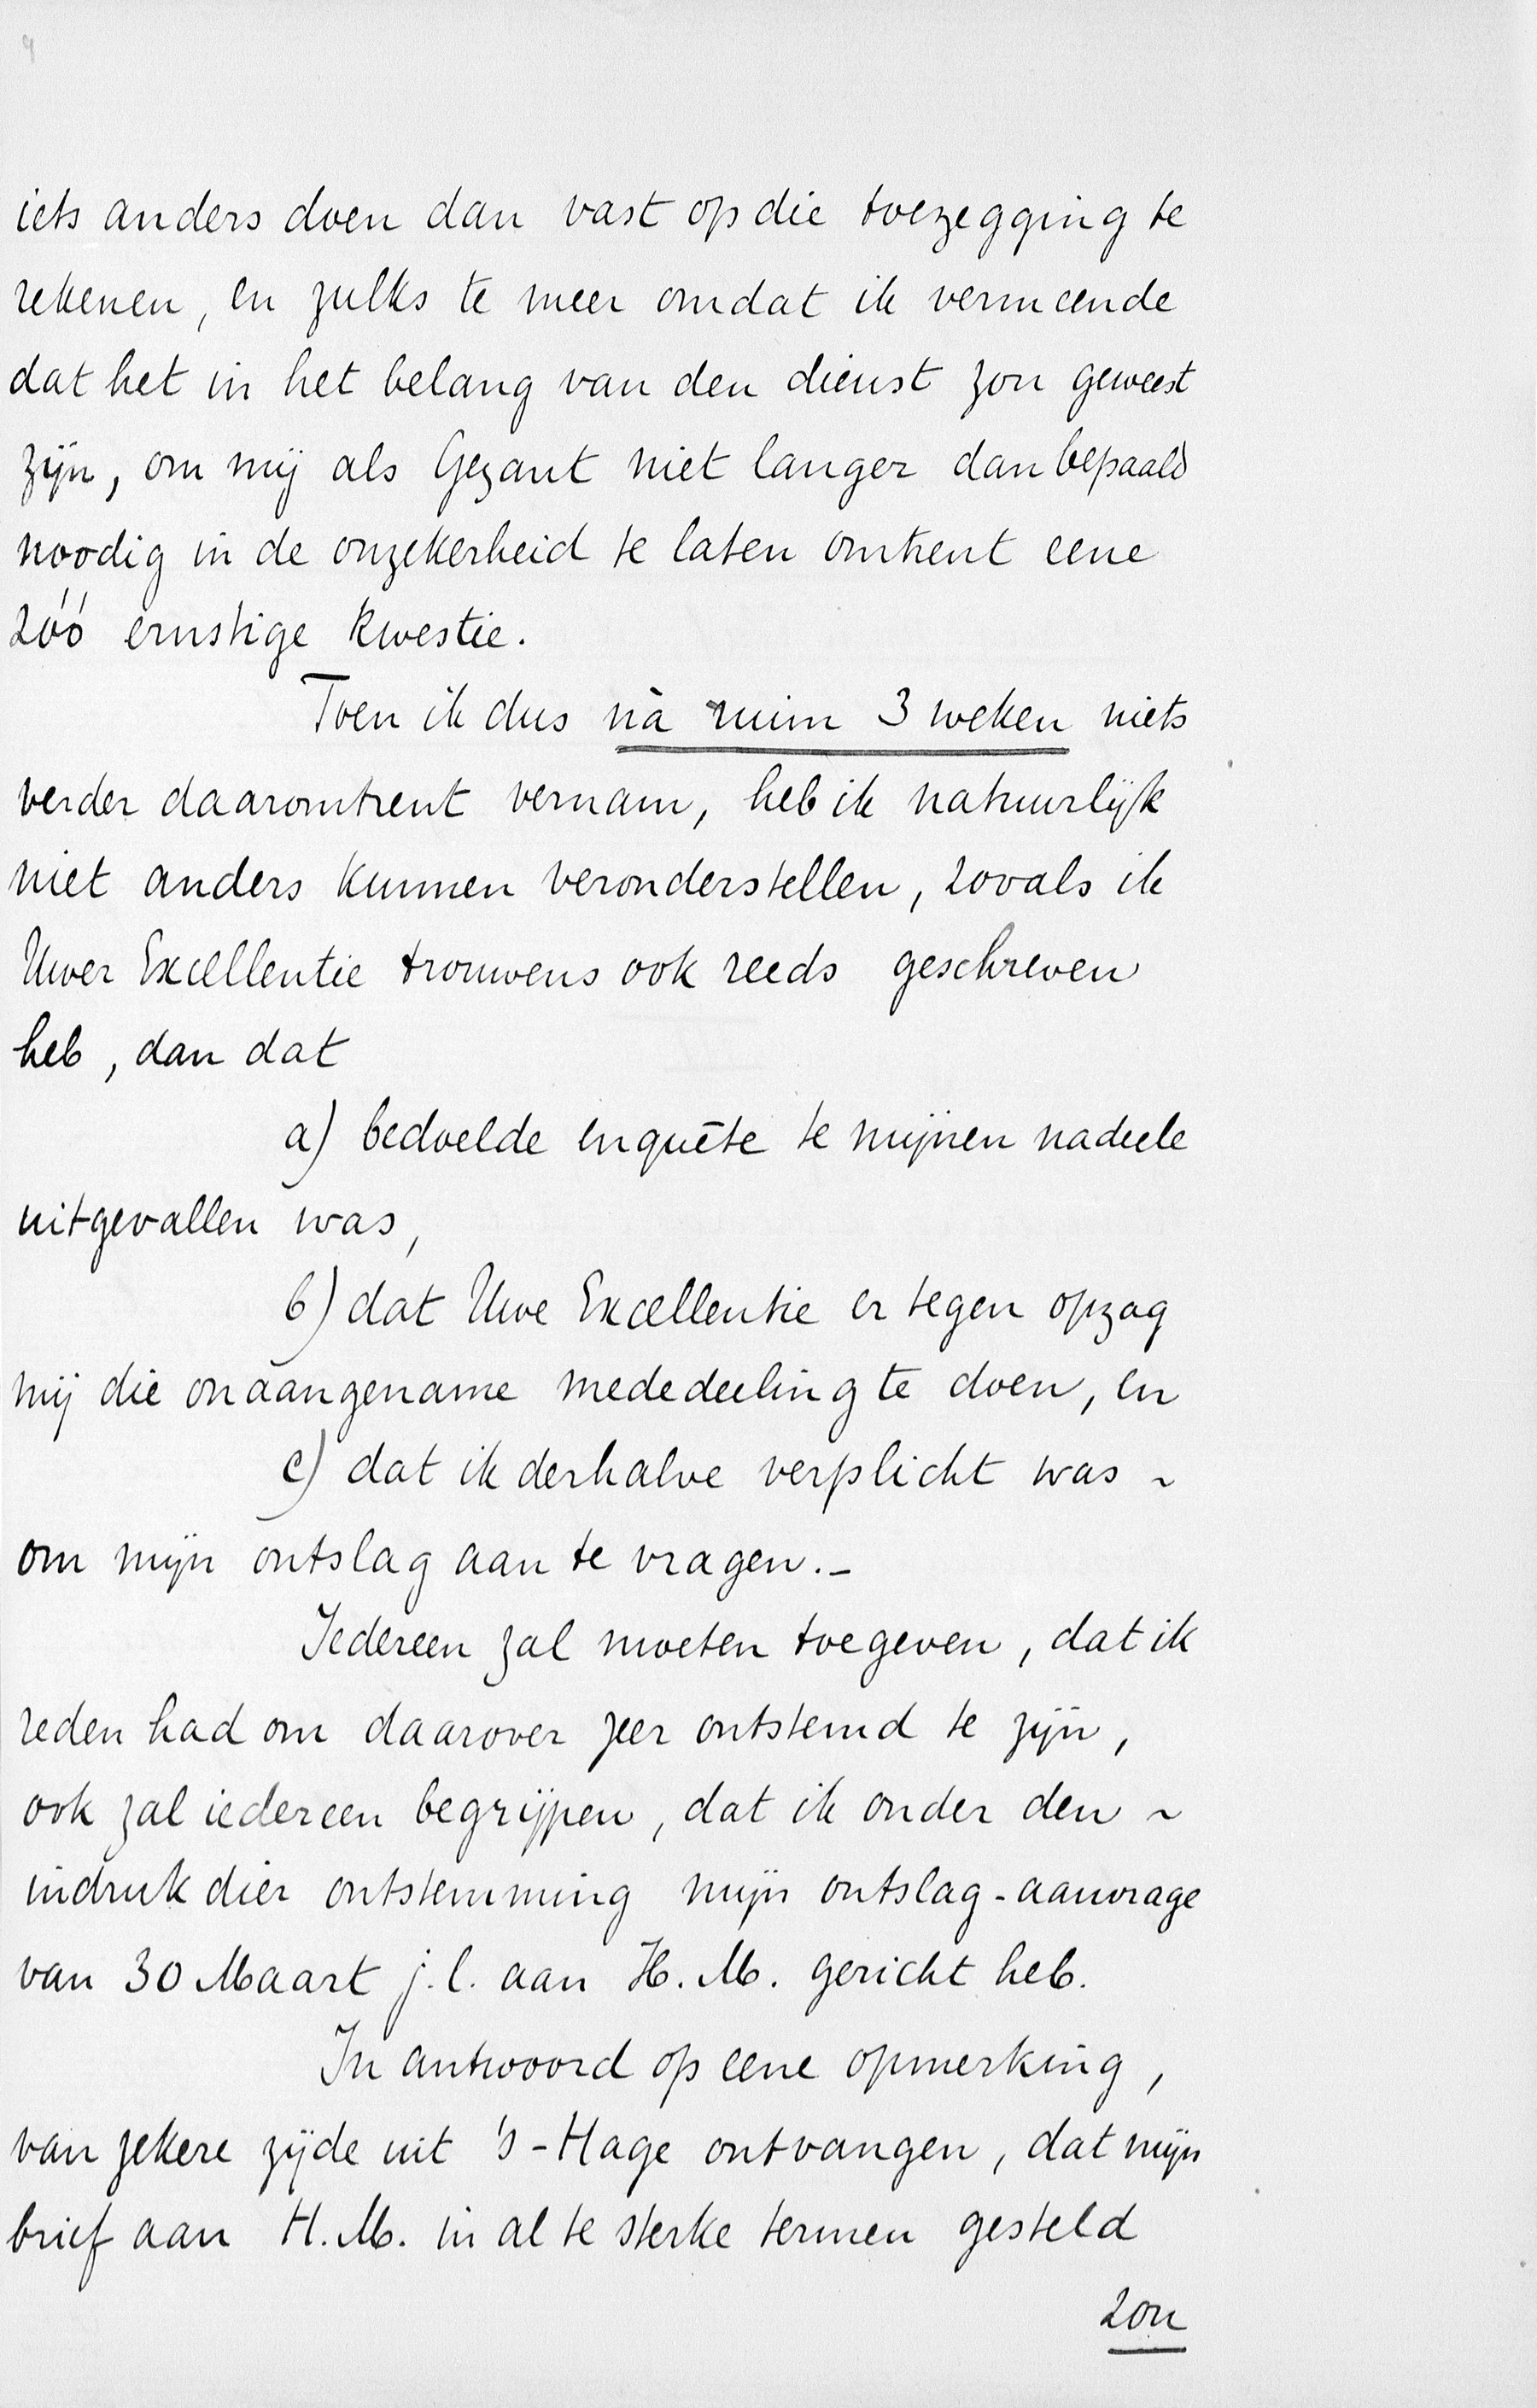 iets anders doen dan vast op die toezegging te
rekenen, en zulks te meer omdat ik vermeende
dat het in het belang van den dienst zou geweest
zijn, om mij als Gezant niet langer dan bepaald
noodig in de onzekerheid te laten omtrent eene
zóó ernstige kwestie.
Toen ik dus nà ruim 3 weken niets
verder daaromtrent vernam, heb ik natuurlijk
niet anders kunnen veronderstellen, zooals ik
Uwer Excellentie trouwens ook reeds geschreven
heb, dan dat
a) bedoelde enquête te mijnen nadeele
uitgevallen was,
b) dat Uwe Excellentie er tegen opzag
mij die onaangename mededeeling te doen, en
c) dat ik derhalve verplicht was ~
om mijn ontslag aan te vragen.-
Iedereen zal moeten toegeven, dat ik
reden had om daarover zeer ontstemd te zijn,
ook zal iedereen begrijpen, dat ik onder den ~
indruk dier ontstemming mijn ontslag-aanvrage
van 30 Maart j.l. aan H.M. gericht heb.
In antwoord op eene opmerking,
van zekere zijde uit 's-Hage ontvangen, dat mijn
brief aan H.M. in al te sterke termen gesteld
zou